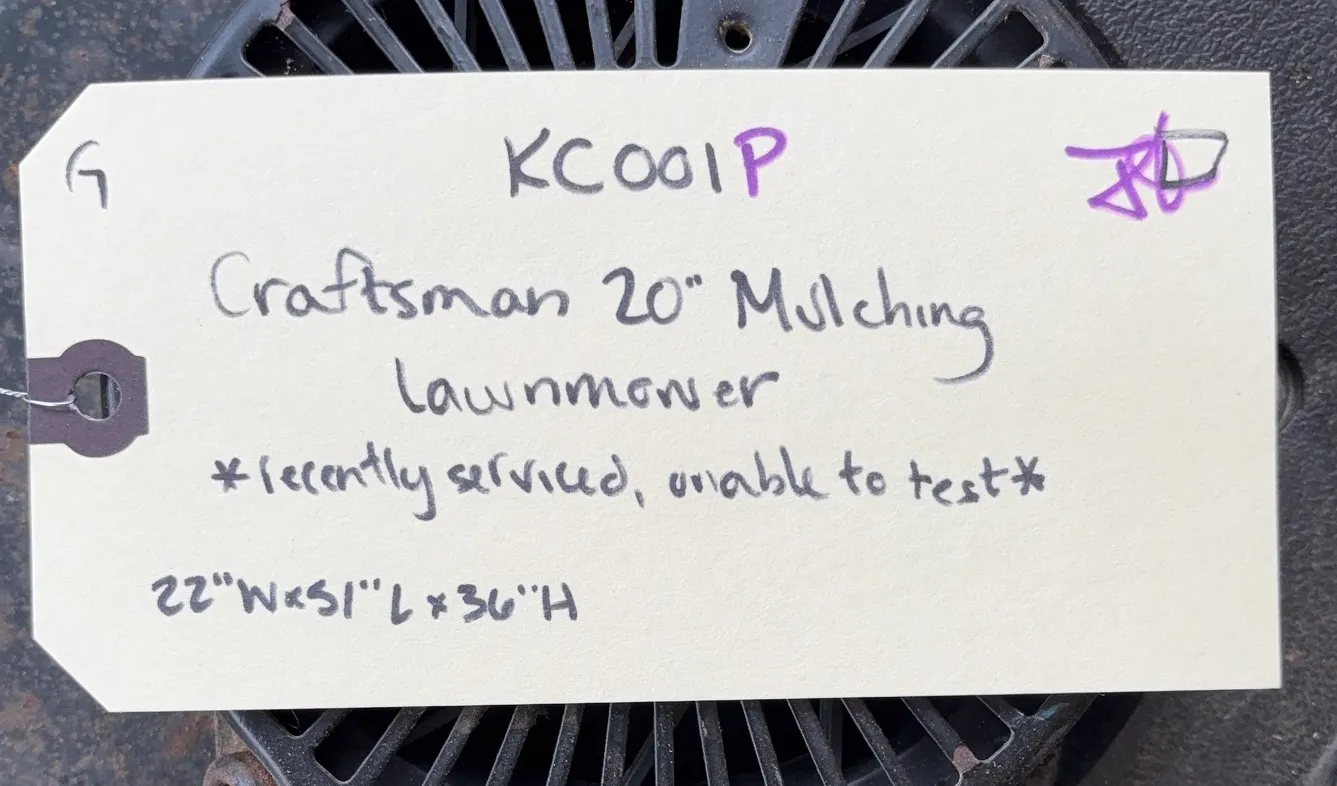 G
KC001P
Craftsman 20" Mulching
Lawnmower
*recently serviced, unable to test*
22"W x 51"L x 36"H